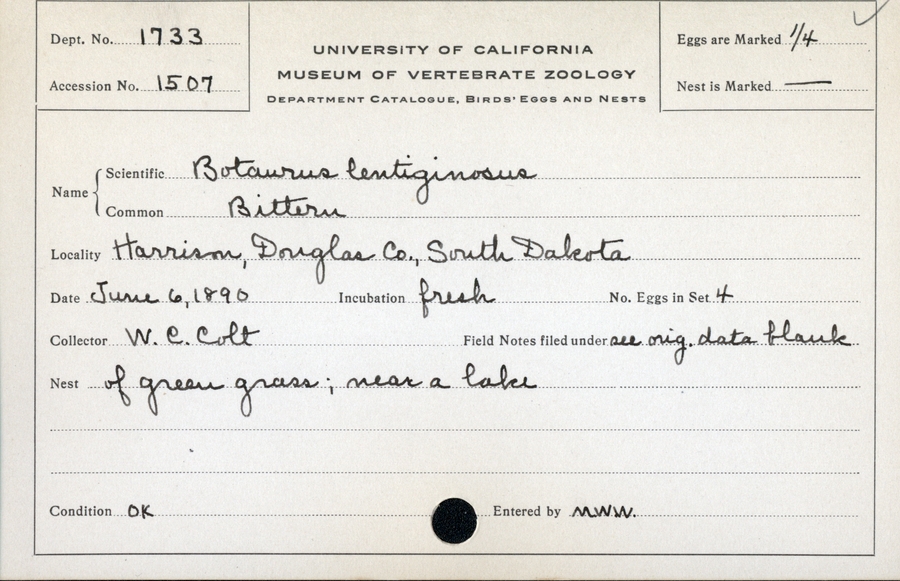 Dept. No. 1733
Accession No. 1507
UNIVERSITY OF CALIFORNIA
MUSEUM OF VERTEBRATE ZOOLOGY
DEPARTMENT CATALOGUE, BIRDS' EGGS AND NESTS
Eggs are Marked 1/4
Nest is Marked —
Name { Scientific Botaurus lentiginosus
Common Bittern
Locality Harrison, Douglas Co., South Dakota
Date June 6, 1890 Incubation fresh No. Eggs in Set 4
Collector W. C. Colt Field Notes filed under see orig. data blank
Nest of green grass; near a lake
Condition OK Entered by MWW.